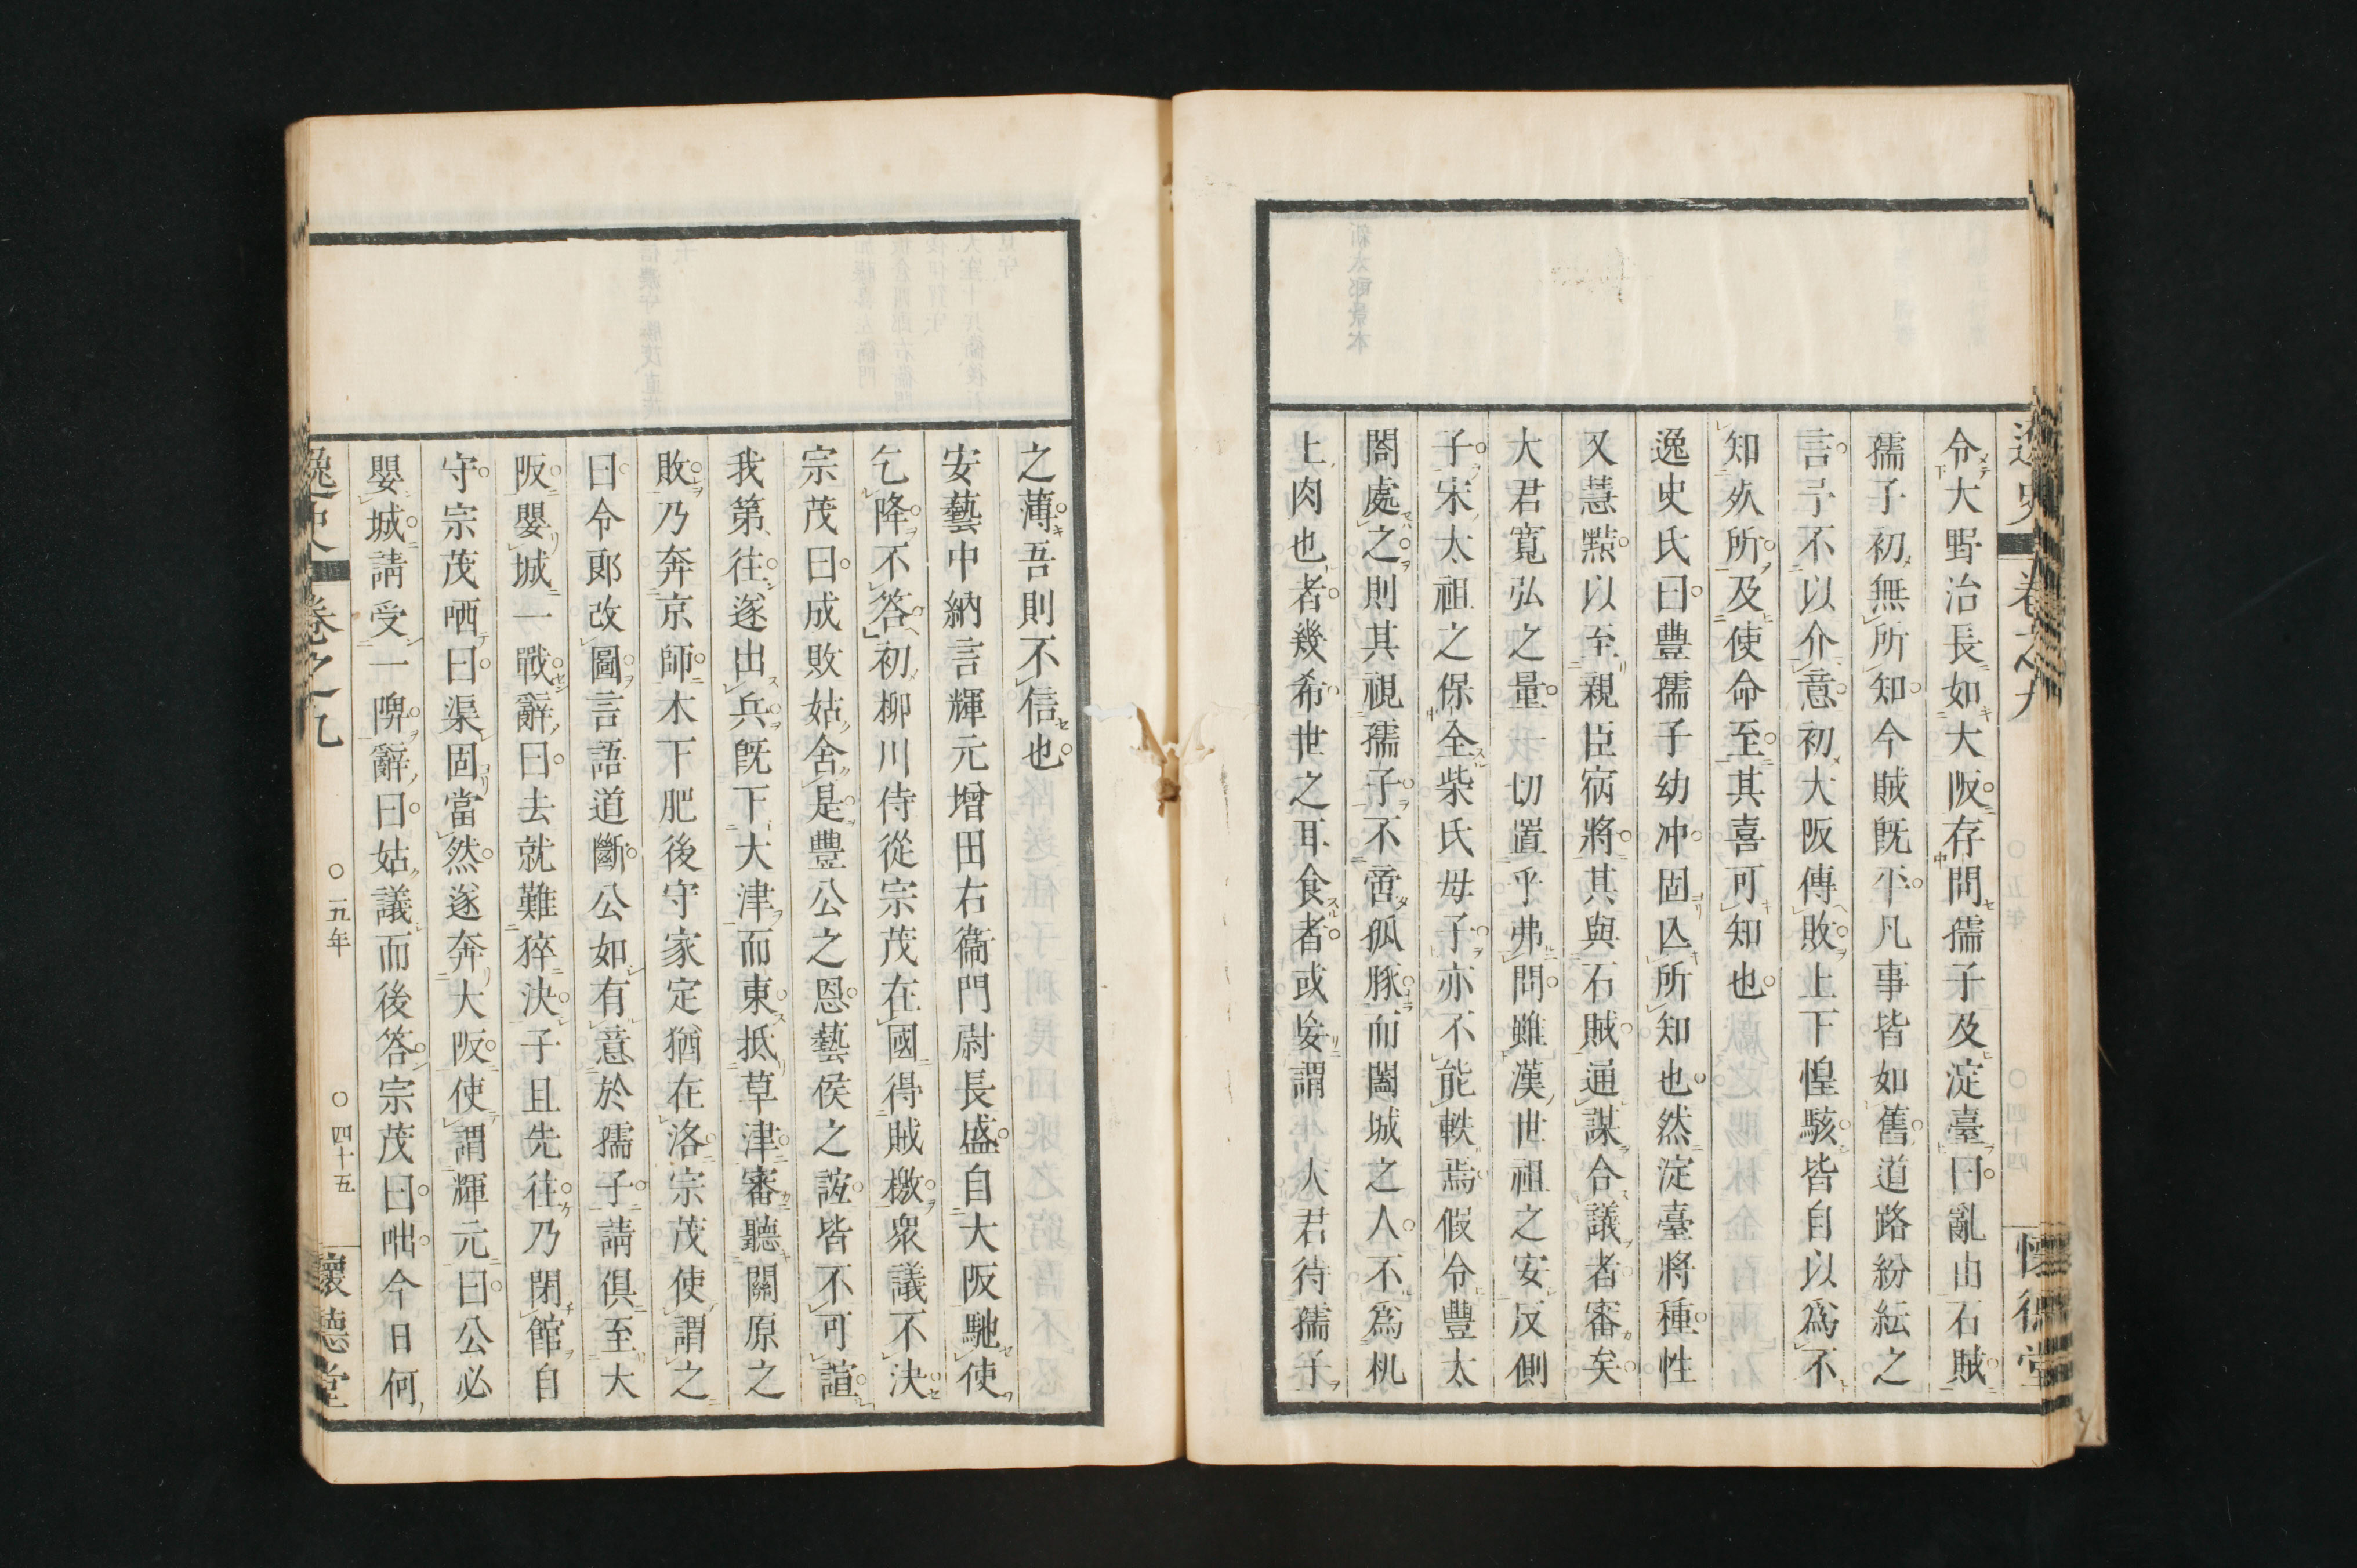 逸史 卷之九 懷德堂
令大野治長如大阪存問孺子及淀臺曰亂由石賊
孺子初無所知今賊既平凡事皆如舊道路紛紜之
言予不以介意初大阪傳敗上下惶駭皆自以爲不
知死所及使命至其喜可知也
逸史氏曰豐孺子幼冲固亾所知也然淀臺將種性
又慧黠以至親臣病將其與石賊通謀合議者審矣
大君寬弘之量一切置乎弗問雖漢世祖之安反側
子宋太祖之保全柴氏母子亦不能軼焉假令豐太
閤處之則其視孺子不啻孤豚而闔城之人不爲机
上肉也者幾希世之耳食者或妄謂 大君待孺子
之薄吾則不信也
安藝中納言輝元增田右衞門尉長盛自大阪馳使
乞降不答初柳川侍從宗茂在國得賊檄衆議不決
宗茂曰成敗姑舍是豐公之恩藝侯之誼皆不可諠
我第往遂出兵既下大津而東抵草津審聽關原之
敗乃奔京師木下肥後守家定猶在洛宗茂使謂之
曰令郎改圖言語道斷公如有意於孺子請俱至大
阪嬰城一戰辭曰去就難猝決子且先往乃閉館自
守宗茂哂曰渠固當然遂奔大阪使謂輝元曰公必
嬰城請受一陴辭曰姑議而後答宗茂曰咄今日何
逸史 卷之九 ○五年 ○四十五 懷德堂